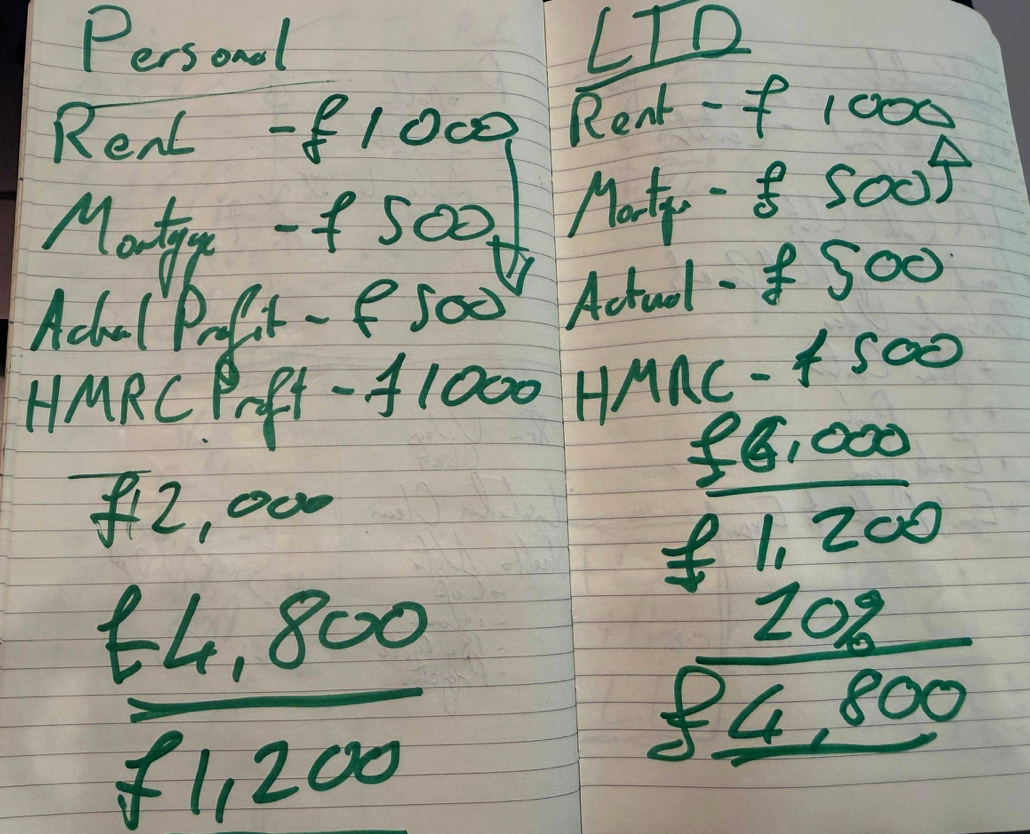 Personal
Rent - £1000
Mortgage - £500
Actual Profit - £500
HMRC Profit - £1000
£12,000
£4,800
£1,200
LTD
Rent - £ 1000
Mortge - £ 500
Actual - £ 500
HMRC - £ 500
£6,000
£ 1,200
20%
£4,800